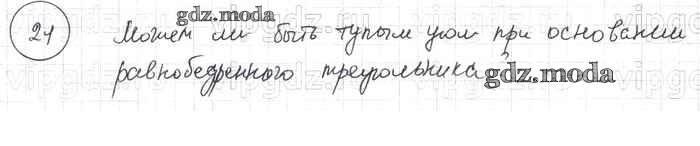 gdz.moda
24 Может ли быть тупым угол при основании
равнобедренного треугольника?
gdz.moda